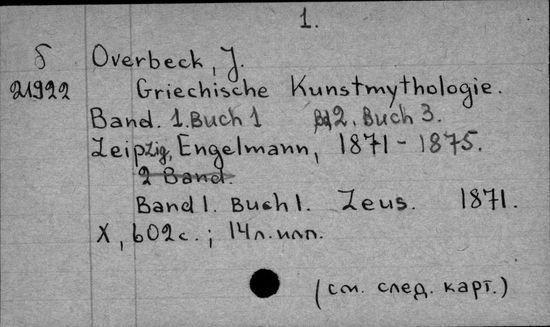 1.
б Overbeck, J.
21922 Griechische Kunstmythologie.
Band. 1. Buch 1 Bd 2. Buch 3.
Leipzig, Engelmann, 1871-1875.
2 Band.
Band 1. Buch 1. Zeus. 1871.
X, 602 с.; 14 л. илл.
(см. след. карт.)